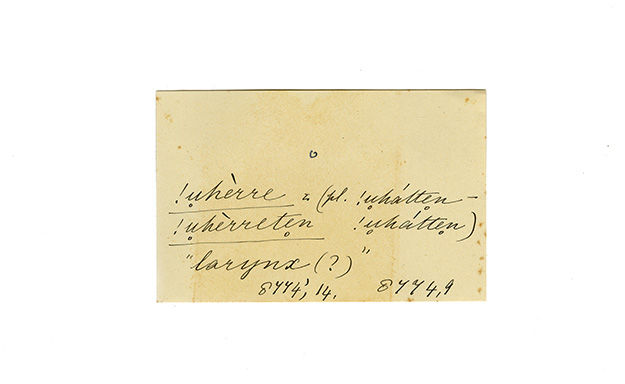 !ụhèrre = (pl. !ụháttẹn-
!ụhèrretẹn !ụháttẹn)
"larynx (?)"
8774', 14. 8774, 9